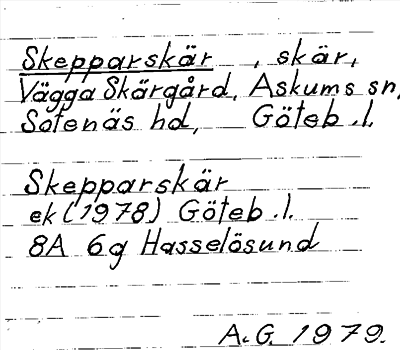 Skepparskär , skär,
Vägga Skärgård, Askums sn,
Sotenäs hd, Göteb.l.
Skepparskär
ek (1978) Göteb.l.
8A 6g Hasselösund
A.G. 1979.